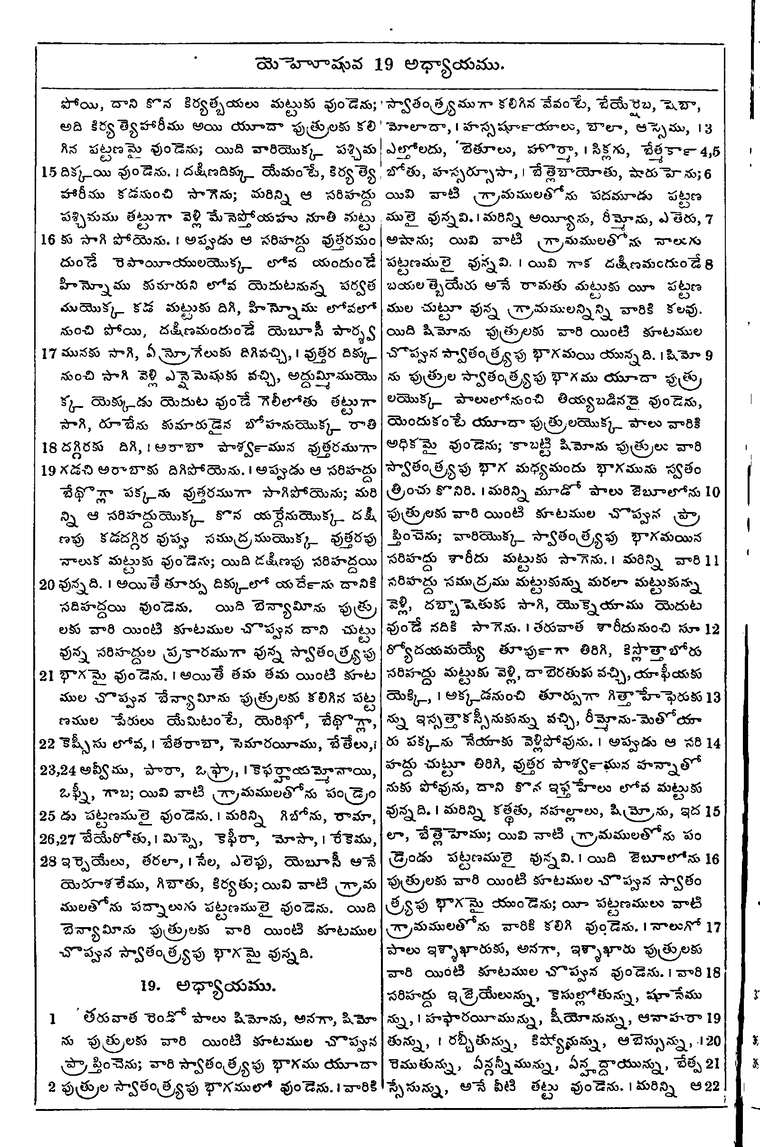 యెహోషువ 19 అధ్యాయము.
పోయి, దాని కొన కిర్యత్బయలు మట్టుకు వుండెను;
అది కిర్యత్యెహారీము అయి యూదా పుత్రులకు కలి
గిన పట్టణమై వుండెను; యిది వారియొక్క పశ్చిమ
15 దిక్కయి వుండెను. । దక్షిణదిక్కు యేమంటే, కిర్యత్యె
హారీము కడనుంచి సాగెను; మరిన్ని ఆ సరిహద్దు
పశ్చిమము తట్టుగా వెళ్లి మేనెప్తోయహు నూతి మట్టు
16 కు సాగి పోయెను. । అప్పుడు ఆ సరిహద్దు వుత్తరమం
దుండే రెపాయీయులయొక్క లోవ యందుండే
హిన్నోము కుమారుని లోవ యెదుటనున్న పర్వత
ముయొక్క కడ మట్టుకు దిగి, హిన్నోము లోవలో
నుంచి పోయి, దక్షిణమందుండే యెబూసీ పార్శ్వ
17 మునకు సాగి, ఏన్రోగేలుకు దిగివచ్చి, । వుత్తర దిక్కు
నుంచి సాగి వెళ్లి ఎన్షెమెషుకు వచ్చి, అద్దుమ్మీముయొ
క్క యెక్కుడు యెదుట వుండే గెలీలోతు తట్టుగా
సాగి, రూబేను కుమారుడైన బోహనుయొక్క రాతి
18 దగ్గిరకు దిగి, । అరాబా పార్శ్వమున వుత్తరముగా
19 గడచి అరాబాకు దిగిపోయెను. । అప్పుడు ఆ సరిహద్దు
బేథొగ్లా పక్కను వుత్తరముగా సాగిపోయెను; మరి
న్ని ఆ సరిహద్దుయొక్క కొన యర్దేనుయొక్క దక్షి
ణపు కడదగ్గిర వుప్పు సముద్రముయొక్క వుత్తరపు
నాలుక మట్టుకు వుండెను; యిది దక్షిణపు సరిహద్దయి
20 వున్నది. । అయితే తూర్పు దిక్కులో యర్దేను దానికి
సరిహద్దయి వుండెను. యిది బెన్యామీను పుత్రు
లకు వారి యింటి కూటముల చొప్పున దాని చుట్టు
వున్న సరిహద్దుల ప్రకారముగా వున్న స్వాతంత్ర్యపు
21 భాగమై వుండెను. । అయితే తమ తమ యింటి కూట
ముల చొప్పున బేన్యామీను పుత్రులకు కలిగిన పట్ట
ణముల పేరులు యేమిటంటే, యెరిఖో, బేథొగ్లా,
22 కెష్సీసు లోవ, । బేతరాబా, సెమారయీము, బేతేలు,।
23,24 అవ్వీము, పారా, ఒఫ్రా, । కెఫర్హాయమ్మోనాయి,
ఒఫ్నీ, గాబ; యివి వాటి గ్రామములతోను పండ్రెం
25 డు పట్టణములై వుండెను. । మరిన్ని గిబోను, రామా,
26,27 బేయేరోతు, । మిస్పె, కెఫీరా, మోసా, । రేకెము,
28 ఇర్పెయేలు, తరలా, । సేల, ఎలెఫు, యెబూసీ అనే
యెరూశలేము, గిబాతు, కిర్యతు; యివి వాటి గ్రామ
ములతోను పద్నాలుగు పట్టణములై వుండెను. యిది
బెన్యామీను పుత్రులకు వారి యింటి కూటముల
చొప్పున స్వాతంత్ర్యపు భాగమై వున్నది.
19. అధ్యాయము.
1 తరువాత రెండో పాలు షిమోను, అనగా, షిమో
ను పుత్రులకు వారి యింటి కూటముల చొప్పున
ప్రాప్తించెను; వారి స్వాతంత్ర్యపు భాగము యూదా
2 పుత్రుల స్వాతంత్ర్యపు భాగములో వుండెను. । వారికి
స్వాతంత్ర్యముగా కలిగిన వేవంటే, బేయేర్షెబ, షెబా,
మోలాదా, । హస్సర్షూగాయాలు, బాలా, ఆస్సెము, । 3
ఎల్తోలదు, బేతూలు, హొర్మా, । సిక్లగు, బేత్మర్కా 4,5
బోతు, హస్సర్సూసా, । బేత్లెబాయోతు, షారుహెను; 6
యివి వాటి గ్రామములతోను పదమూడు పట్టణ
ములై వున్నవి. । మరిన్ని అయ్యీను, రీమ్మోను, ఎతెరు, 7
అషాను; యివి వాటి గ్రామములతోను నాలుగు
పట్టణములై వున్నవి. । యివి గాక దక్షిణమందుండే 8
బయలత్బెయేరు అనే రామతు మట్టుకు యీ పట్టణ
ముల చుట్టూ వున్న గ్రామములన్నిన్ని వారికి కలవు.
యిది షిమోను పుత్రులకు వారి యింటి కూటముల
చొప్పున స్వాతంత్ర్యపు భాగమయి యున్నది. । షిమో 9
ను పుత్రుల స్వాతంత్ర్యపు భాగము యూదా పుత్రు
లయొక్క పాలులోనుంచి తియ్యబడినదై వుండెను,
యెందుకంటే యూదా పుత్రులయొక్క పాలు వారికి
అధికమై వుండెను; కాబట్టి షిమోను పుత్రులు వారి
స్వాతంత్ర్యపు భాగ మధ్యమందు భాగమును స్వతం
త్రించు కొనిరి. । మరిన్ని మూడో పాలు జెబూలోను 10
పుత్రులకు వారి యింటి కూటముల చొప్పున ప్రా
ప్తించెను; వారియొక్క స్వాతంత్ర్యపు భాగమయిన
సరిహద్దు శారీదు మట్టుకు సాగెను. । మరిన్ని వారి 11
సరిహద్దు సముద్రము మట్టుకున్ను మరలా మట్టుకున్ను
వెళ్లి, దబ్బాషెతుకు సాగి, యొక్నెయాము యెదుట
వుండే నదికి సాగెను. । తరువాత శారీదునుంచి సూ 12
ర్యోదయమయ్యే తూర్పుగా తిరిగి, కిస్లొత్తాబోరు
సరిహద్దు మట్టుకు వెళ్లి, దాబెరతుకు వచ్చి, యాఫీయకు
యెక్కి, । అక్కడనుంచి తూర్పుగా గిత్తాహేఫెరుకు 13
న్ను ఇస్సత్తాకస్సీనుకున్ను వచ్చి, రీమ్మోను-మెతోయా
రు పక్కను నేయాకు వెళ్లిపోవును. । అప్పుడు ఆ సరి 14
హద్దు చుట్టూ తిరిగి, వుత్తర పార్శ్వమున హన్నాతో
నుకు పోవును, దాని కొన ఇఫ్తహేలు లోవ మట్టుకు
వున్నది. । మరిన్ని కత్థతు, నహల్లాలు, షిమ్రోను, ఇద 15
లా, బేత్లెహెము; యివి వాటి గ్రామములతోను పం
డ్రెండు పట్టణములై వున్నవి. । యిది జెబూలోను 16
పుత్రులకు వారి యింటి కూటముల చొప్పున స్వాతం
త్ర్యపు భాగమై యుండెను; యీ పట్టణములు వాటి
గ్రామములతోను వారికి కలిగి వుండెను. । నాలుగో 17
పాలు ఇశ్శాఖారుకు, అనగా, ఇశ్శాఖారు పుత్రులకు
వారి యింటి కూటముల చొప్పున వుండెను. । వారి 18
సరిహద్దు ఇజ్రెయేలున్ను, కెసుల్లోతున్ను, షూనేము
న్ను, । హఫారయీమున్ను, షీయోనున్ను, అనాహరా 19
తున్ను, । రబ్బీతున్ను, కిష్యోనున్ను, ఆబెస్సున్ను, । 20
రెమెతున్ను, ఏన్గన్నీమున్ను, ఏన్హద్దాయున్ను, బేత్ప 21
స్సేసున్ను, అనే వీటి తట్టు వుండెను. । మరిన్ని ఆ 22